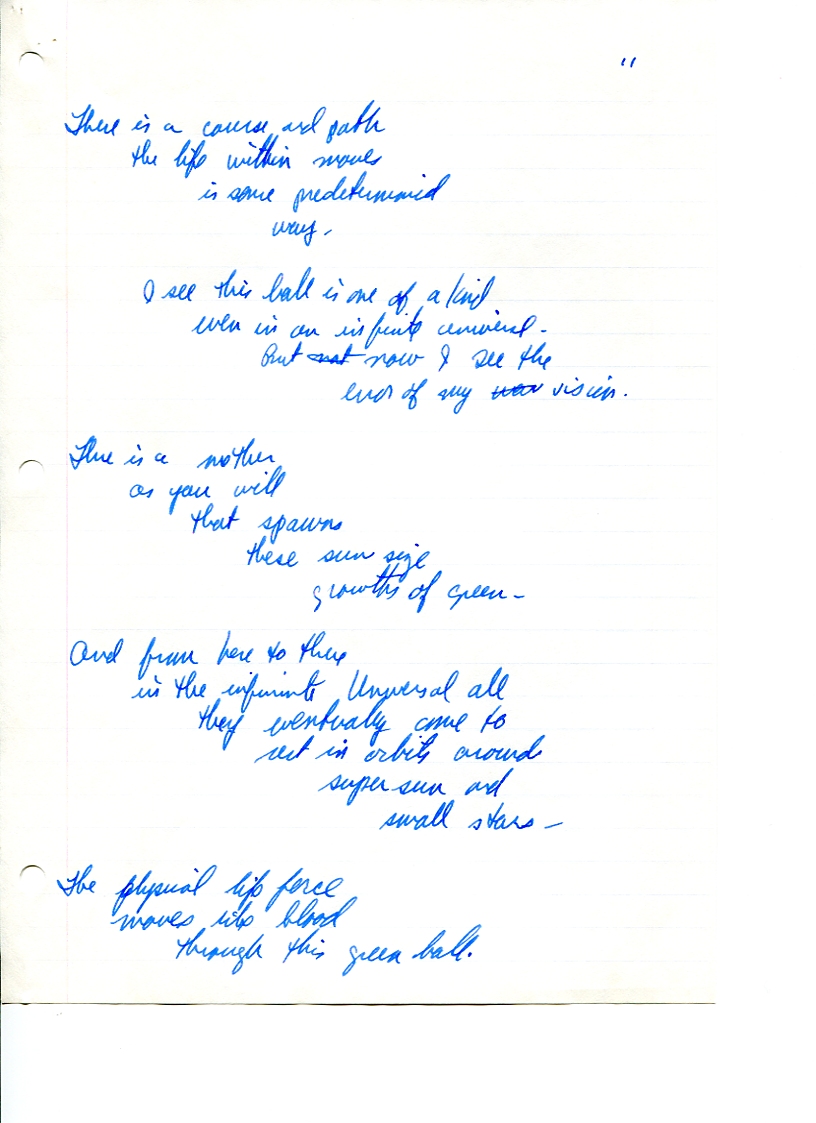 11
There is a course and path
the life within moves
in some predetermined
way.
I see this ball is one of a kind
even in an infinite universe.
But not now I see the
end of my vision.
There is a mother
as you will
that spawns
these sun size
growths of green -
And from here to there
in the infininte Universal all
they eventually come to
rest in orbits around
super sun and
small stars -
The physical life force
moves like blood
through this green ball.